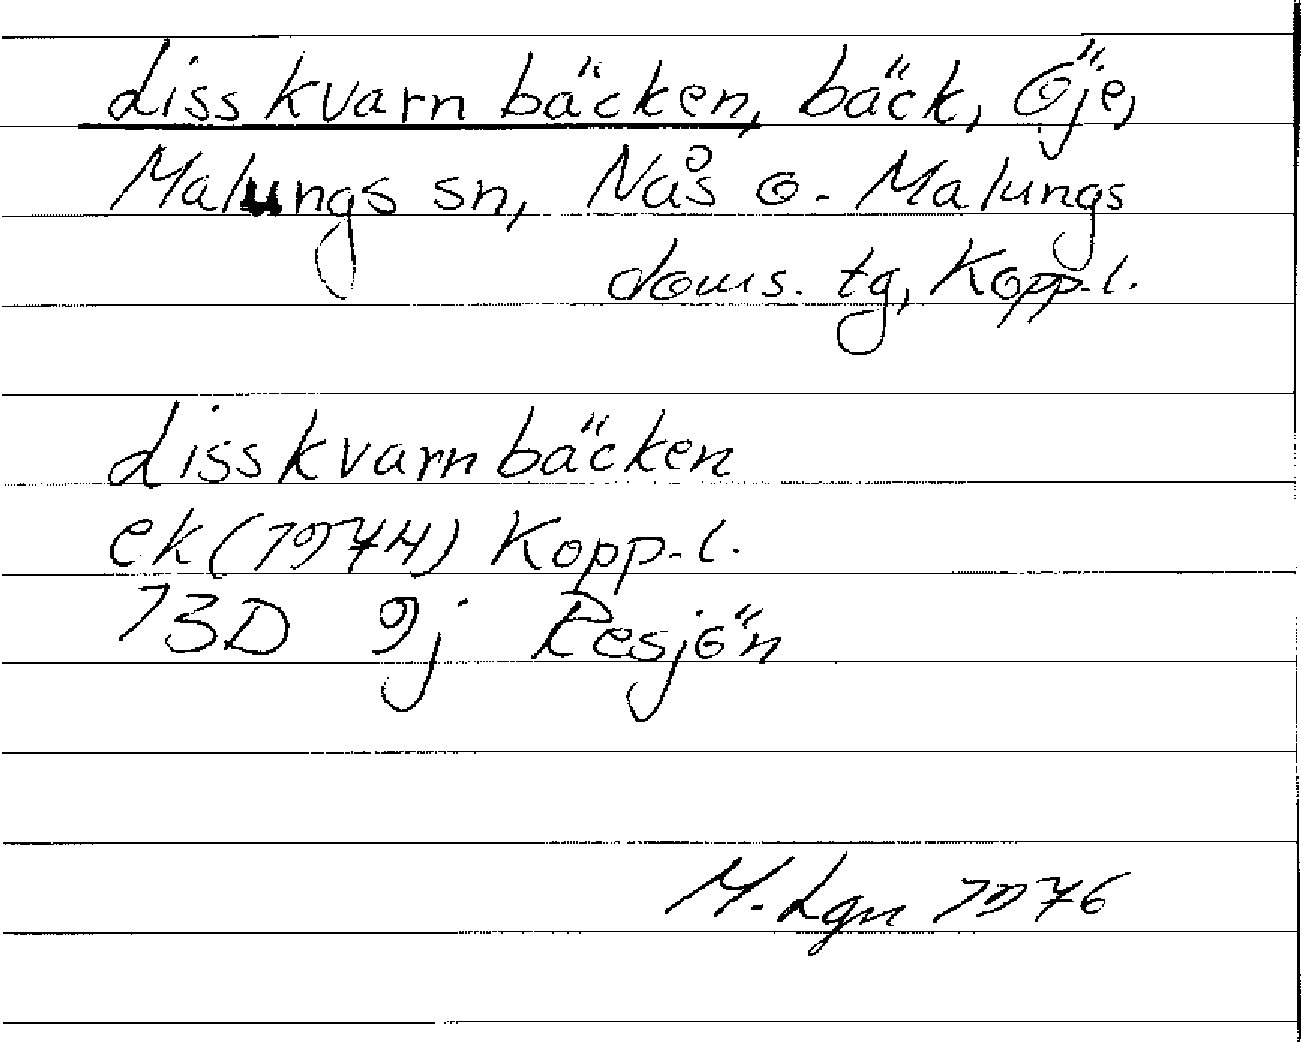 Lisskvarnbäcken, bäck, Öje,
Malungs sn, Nås o. Malungs
doms. tg, Kopp.l.
Lisskvarnbäcken
ek (1974) Kopp.l.
13D 9j Resjön
M. Lgn 1976